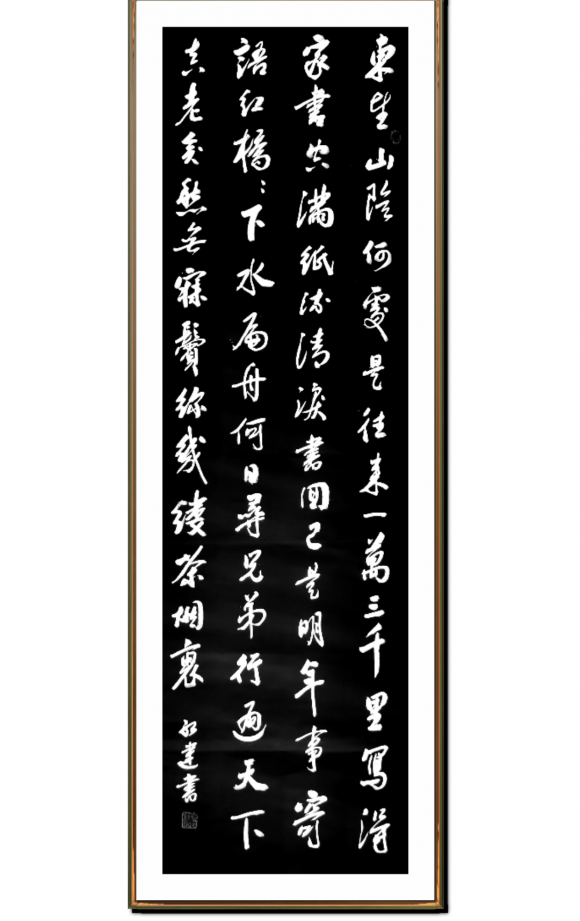 東望山陰何處是往来一萬三千里寫得
家書空滿紙流清淚書回已是明年事寄
語紅橋〻下水扁舟何日尋兄弟行遍天下
真老矣愁無寐鬢絲幾縷茶烟裏
書